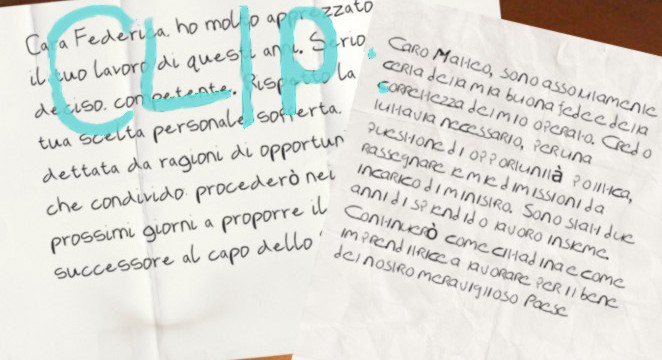 Cara Federica, ho molto apprezzato
il tuo lavoro di questi anni. Serio
deciso. competente. Rispetto la
tua scelta personale, sofferta.
dettata da ragioni di opportun
che condivido procederò nei
prossimi giorni a proporre il
successore al capo dello
CLIP
Caro Matteo, sono assolutamente
certa della mia buona fede e della
correttezza del mio operato. Credo
tuttavia necessario, per una
questione di opportunità politica,
rassegnare le mie dimissioni da
incarico di ministro. Sono stati due
anni di splendido lavoro insieme.
Continuerò come cittadina e come
imprenditrice a lavorare per il bene
del nostro meraviglioso Paese